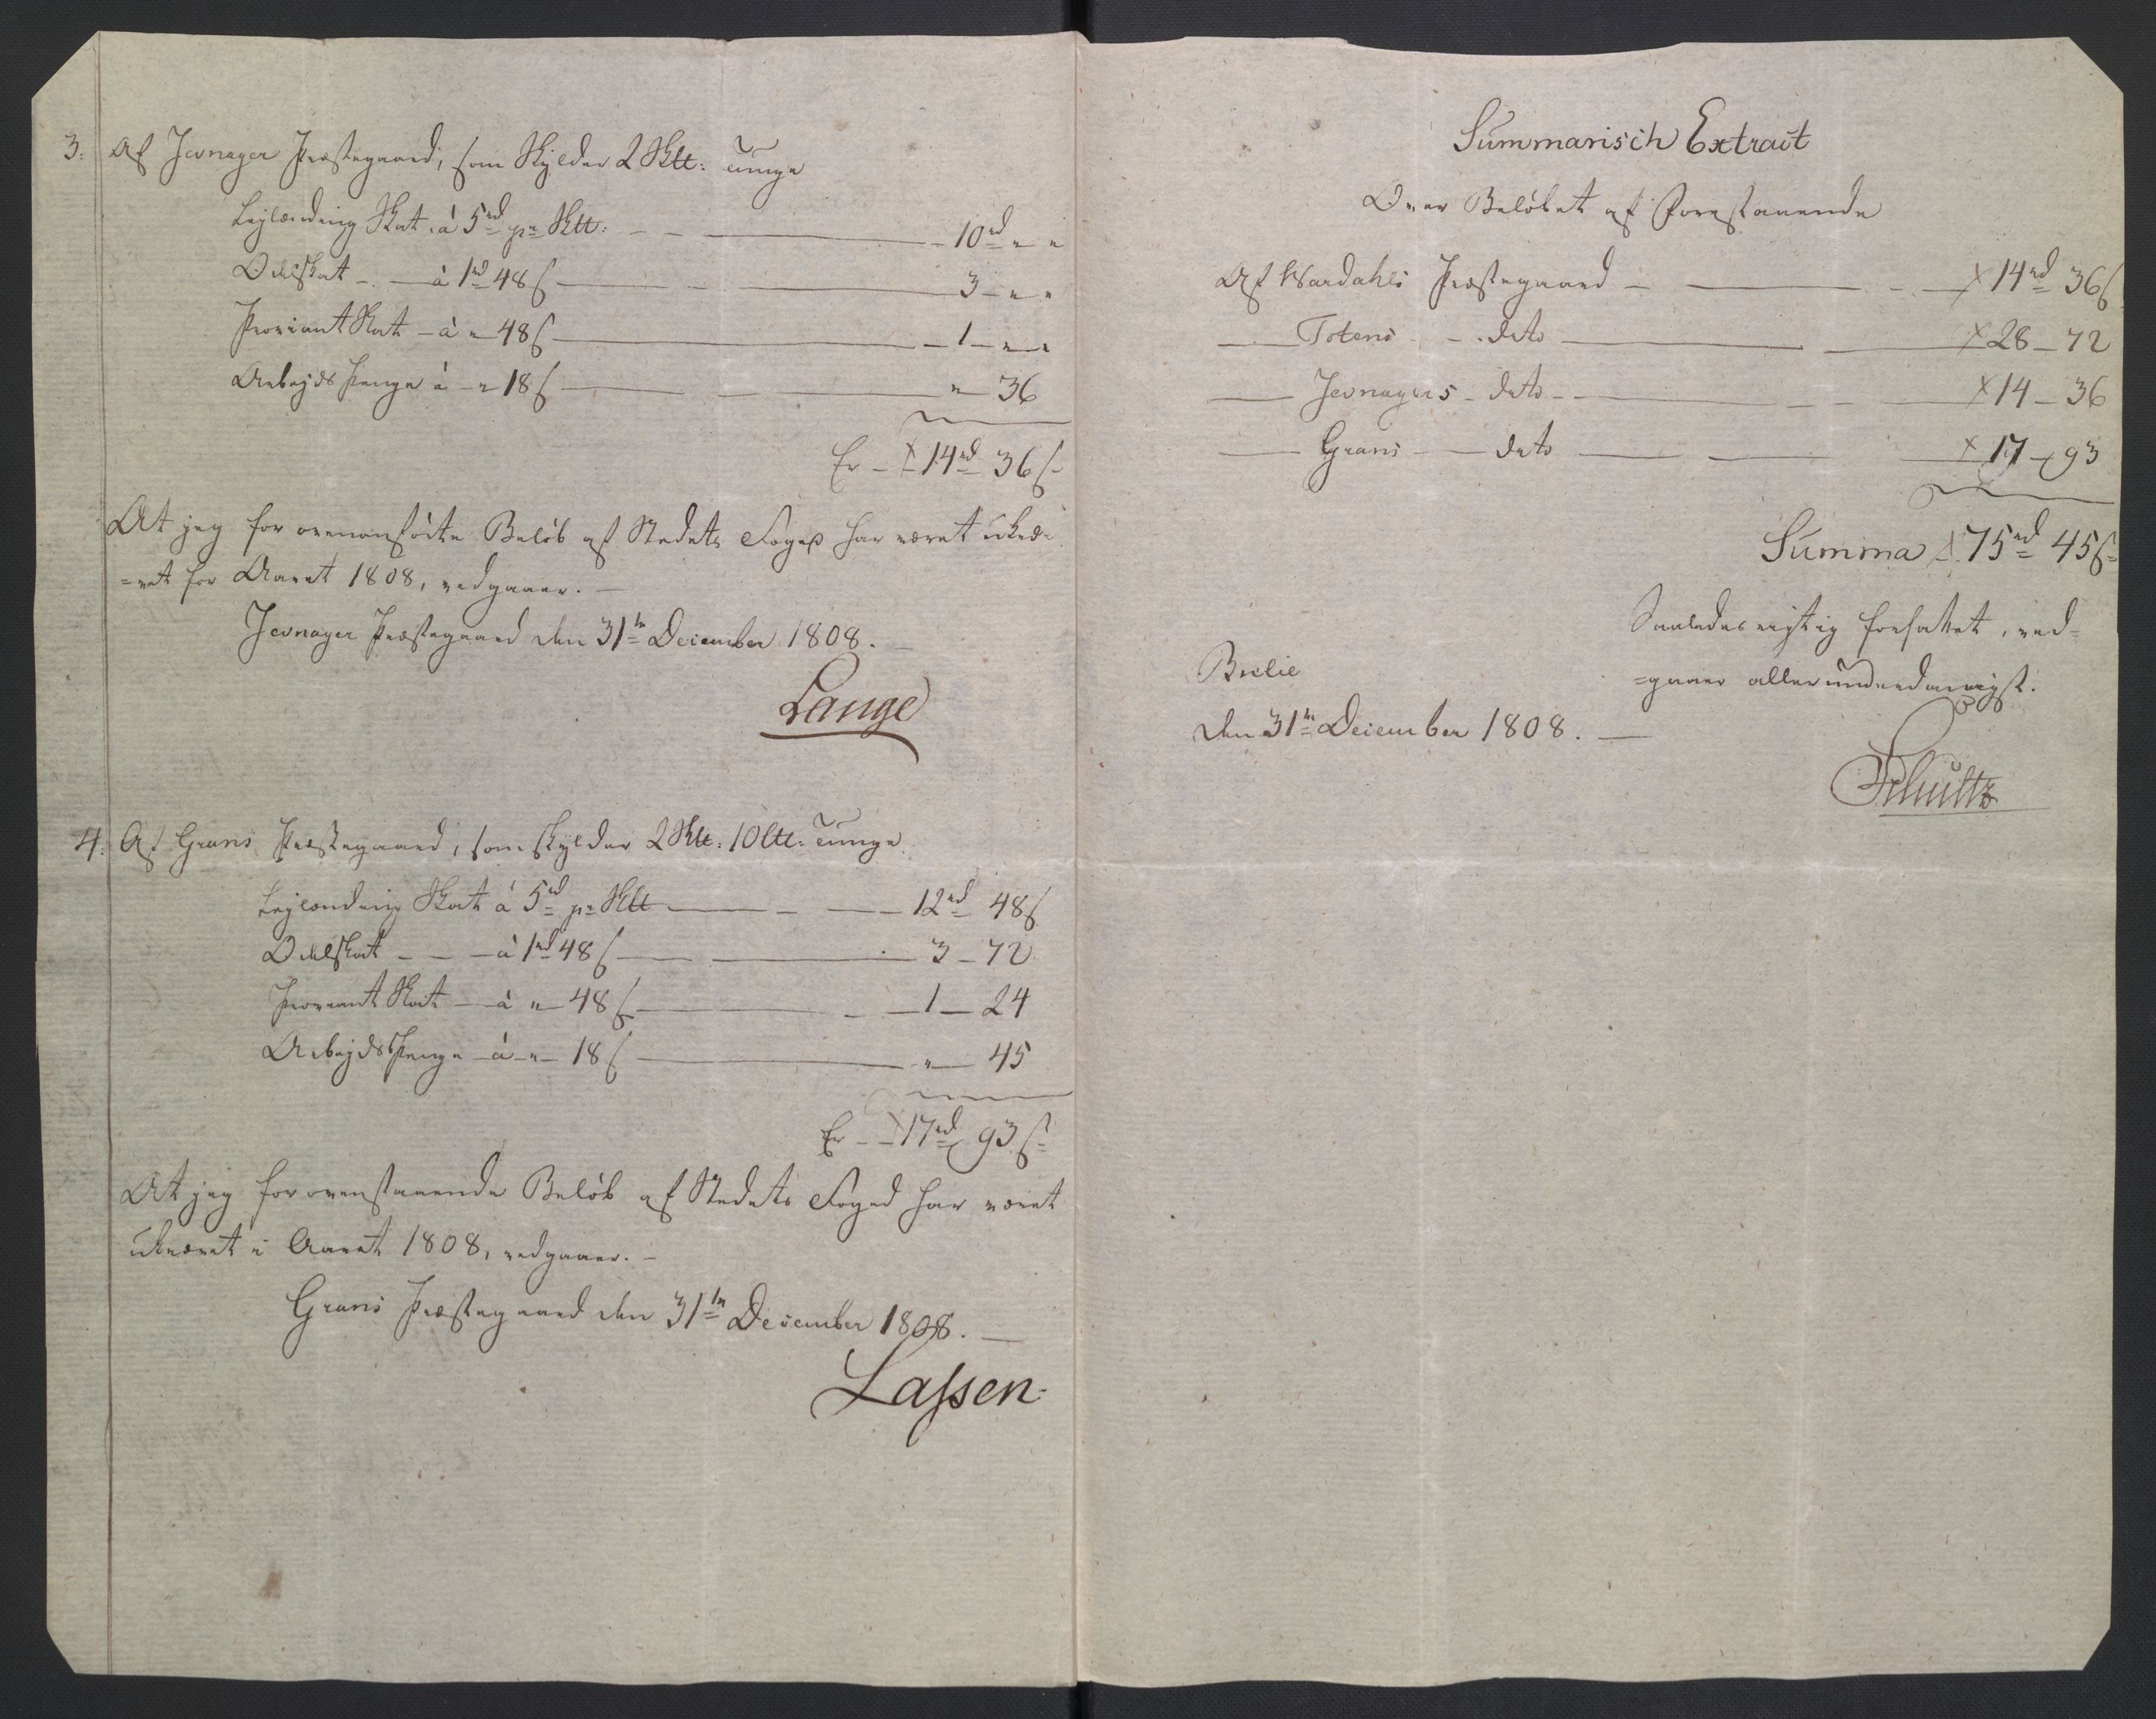 3. Af Jevnager Præstegaard, som Skylder 2 Sk℔: Tunge
Leylænding Skat à 5rd pr Sk℔: 10rd " "
Odelskat - à 1rd 48 ß 3 - " "
Proviant Skat - à " 48 ß 1 - " "
Arbejds Penge à - " 18 ß " 36
Er - 14rd 36 ß
At jeg for ovenanførte Beløb af Stedets Foged har været qved-
=ret for Aaret 1808, vedgaaer. -
Jevnager Præstegaard den 31te December 1808.
Lange
4. Af Grans Præstegaard, som skylder 2 Sk℔: 10 ℔: Tunge
Leylænding Skat à 5rd pr Sk℔ 12rd 48 ß
Odelskat - - à 1rd 48 ß 3 - 72
Proviant Skat - à " 48 ß 1 - 24
Arbejds Penge - à - " - 18 ß " 45
Er - 17rd 93 ß
At jeg for ovenstaaende Beløb af Stedets Foged har været
i Aaret 1808, vedgaaer. -
Grans Præstegaard den 31te December 1808. -
Lassen
Summarisch Extract
Over Beløbet af Forestaaende
Af Wardahls Præstegaard - 14rd 36 ß
Totens - dito 28 - 72
Jevnagers - dito 14 - 36
Grans - dito 17 - 93
Summa 75rd 45 ß
Saaledes rigtig forfattet, ved-
=gaaer allerunderdanigst.
Brelie
den 31te December 1808. -
Schultz